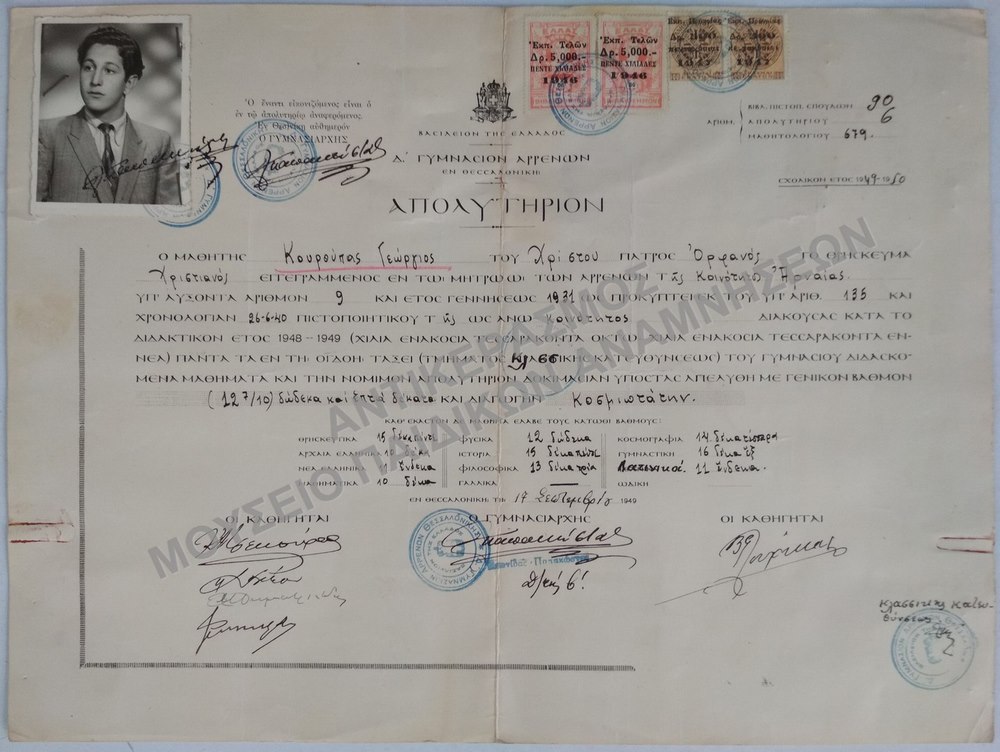 Ὁ ἔναντι εἰκονιζόμενος εἶναι ὁ
ἐν τῷ ἀπολυτηρίῳ ἀναφερόμενος.
Ἐν Θεσ/νίκῃ αὐθημερόν
Ο ΓΥΜΝΑΣΙΑΡΧΗΣ
Ἐκπ. Τελῶν
Δρ. 5,000.-
ΠΕΝΤΕ ΧΙΛΙΑΔΕΣ
1946
Ἐκπ. Τελῶν
Δρ. 5,000.-
ΠΕΝΤΕ ΧΙΛΙΑΔΕΣ
1946
Ἐκπ. Πρόνοια
1947
Ἐκπ. Πρόνοια
1947
ΒΑΣΙΛΕΙΟΝ ΤΗΣ ΕΛΛΑΔΟΣ
Δ΄ ΓΥΜΝΑΣΙΟΝ ΑΡΡΕΝΩΝ
ΕΝ ΘΕΣΣΑΛΟΝΙΚΗΙ
ΒΙΒΛ. ΠΙΣΤΟΠ. ΣΠΟΥΔΩΝ 90
ΑΡΙΘΜ. ΑΠΟΛΥΤΗΡΙΟΥ 6
ΜΑΘΗΤΟΛΟΓΙΟΥ 679.
ΣΧΟΛΙΚΟΝ ΕΤΟΣ 1949-1950
ΑΠΟΛΥΤΗΡΙΟΝ
Ο ΜΑΘΗΤΗΣ Κουρούπας Γεώργιος ΤΟΥ Χρίστου ΠΑΤΡΟΣ Ὀρφανός ΤΟ ΘΡΗΣΚΕΥΜΑ
Χριστιανός ΕΓΓΕΓΡΑΜΜΕΝΟΣ ΕΝ ΤΩΙ ΜΗΤΡΩΩΙ ΤΩΝ ΑΡΡΕΝΩΝ Τῆς Κοινότητος Ἀρναίας.
ΥΠ' ΑΥΞΟΝΤΑ ΑΡΙΘΜΟΝ 9 ΚΑΙ ΕΤΟΣ ΓΕΝΝΗΣΕΩΣ 1931 ΩΣ ΠΡΟΚΥΠΤΕΙ ΕΚ ΤΟΥ ΥΠ' ΑΡΙΘ. 135 ΚΑΙ
ΧΡΟΝΟΛΟΓΙΑΝ 26-6-40 ΠΙΣΤΟΠΟΙΗΤΙΚΟΥ Τῆς ΩΣ ΑΝΩ Κοινότητος ΔΙΑΚΟΥΣΑΣ ΚΑΤΑ ΤΟ
ΔΙΔΑΚΤΙΚΟΝ ΕΤΟΣ 1948 - 1949 (ΧΙΛΙΑ ΕΝΑΚΟΣΙΑ ΤΕΣΣΑΡΑΚΟΝΤΑ ΟΚΤΩ - ΧΙΛΙΑ ΕΝΑΚΟΣΙΑ ΤΕΣΣΑΡΑΚΟΝΤΑ ΕΝ-
ΝΕΑ) ΠΑΝΤΑ ΤΑ ΕΝ ΤΗΙ ΟΓΔΟΗΙ ΤΑΞΕΙ (ΤΜΗΜΑΤΟΣ ΚΑΤΕΥΘΥΝΣΕΩΣ) ΤΟΥ ΓΥΜΝΑΣΙΟΥ ΔΙΔΑΣΚΟ-
ΜΕΝΑ ΜΑΘΗΜΑΤΑ ΚΑΙ ΤΗΝ ΝΟΜΙΜΟΝ ΑΠΟΛΥΤΗΡΙΟΝ ΔΟΚΙΜΑΣΙΑΝ ΥΠΟΣΤΑΣ ΑΠΕΛΥΘΗ ΜΕ ΓΕΝΙΚΟΝ ΒΑΘΜΟΝ
(12 7/10) δώδεκα καί ἑπτά δέκατα ΚΑΙ ΔΙΑΓΩΓΗΝ Κοσμιωτάτην.
ΚΑΘ' ΕΚΑΣΤΟΝ ΔΕ ΜΑΘΗΜΑ ΕΛΑΒΕ ΤΟΥΣ ΚΑΤΩΘΙ ΒΑΘΜΟΥΣ:
ΘΡΗΣΚΕΥΤΙΚΑ 15 δεκαπέντε ΦΥΣΙΚΑ 12 δώδεκα ΚΟΣΜΟΓΡΑΦΙΑ 14 δεκατέσσερα
ΑΡΧΑΙΑ ΕΛΛΗΝΙΚΑ 10 δέκα ΙΣΤΟΡΙΑ 15 δεκαπέντε ΓΥΜΝΑΣΤΙΚΗ 16 δέκα ἕξ
ΝΕΑ ΕΛΛΗΝΙΚΑ 11 ἕνδεκα ΦΙΛΟΣΟΦΙΚΑ 13 δέκα τρία Λατινικά 11 ἕνδεκα.
ΜΑΘΗΜΑΤΙΚΑ 10 δέκα ΓΑΛΛΙΚΑ ΩΔΙΚΗ
ΕΝ ΘΕΣΣΑΛΟΝΙΚΗΙ ΤΗΙ 17 Σεπτεμβρίου 1949
ΟΙ ΚΑΘΗΓΗΤΑΙ Ο ΓΥΜΝΑΣΙΑΡΧΗΣ ΟΙ ΚΑΘΗΓΗΤΑΙ
Κλασσικῆς Κατευ-
θύνσεως
ΑΝΤΙΚΕΡΑΣΜΟΣ
ΜΟΥΣΕΙΟ ΠΑΙΔΙΚΩΝ ΑΝΑΜΝΗΣΕΩΝ